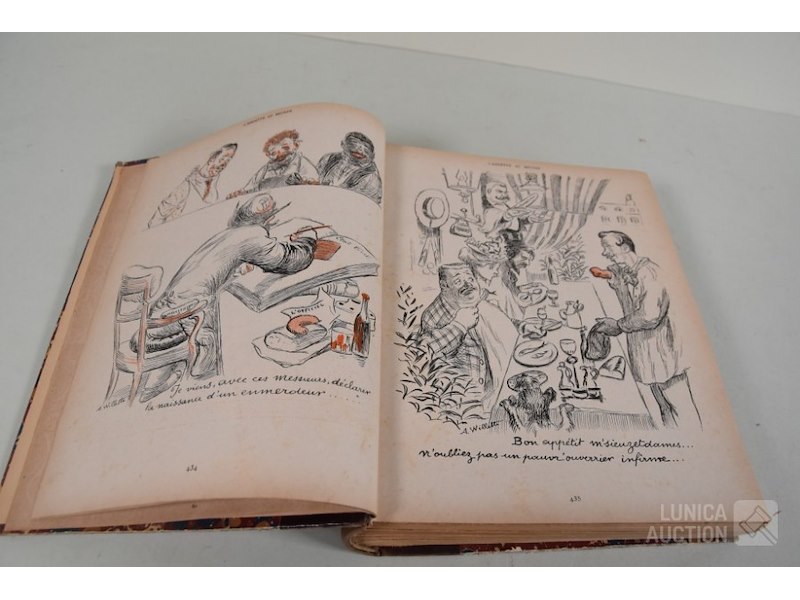 L'ASSIETTE AU BEURRE
A. Willette
Je viens, avec ces messieurs, déclarer
la naissance d'un enmerdeur.....
434
L'ASSIETTE AU BEURRE
A. Willette
Bon appétit m'sieuzetdames...
N'oubliez pas un pauvr'ouverrier infirme...
435
LUNICA
AUCTION